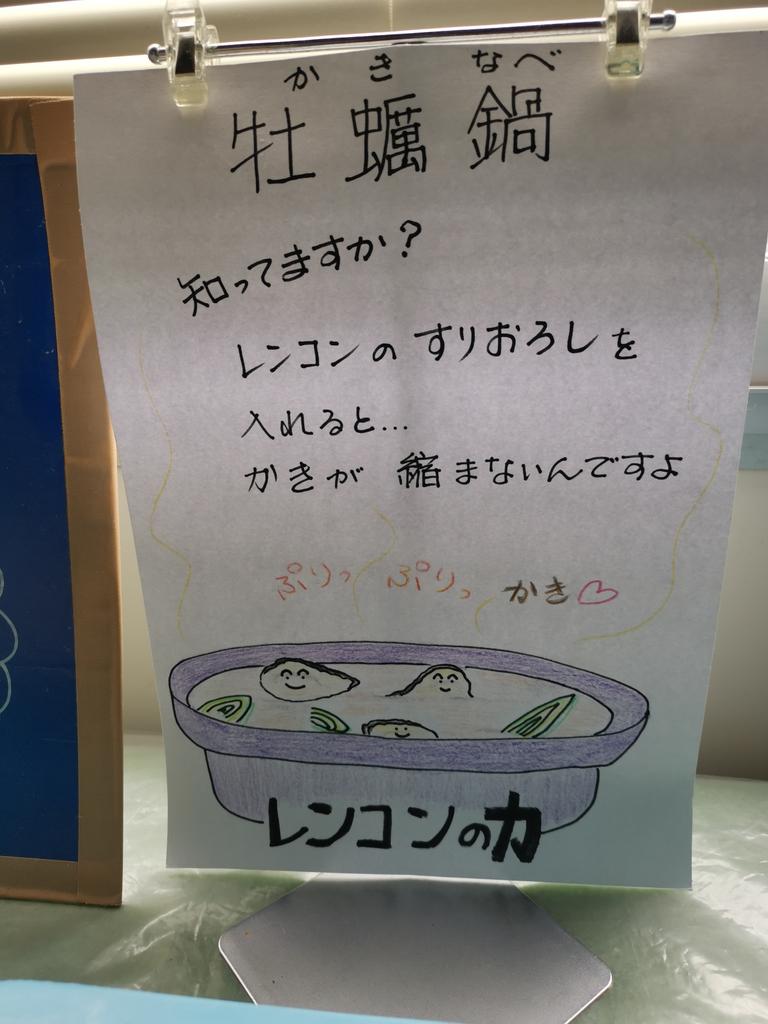 かきなべ
牡蠣鍋
知ってますか?
レンコンのすりおろしを
入れると...
かきが縮まないんですよ
ぷりっぷりっかき♡
レンコンの力